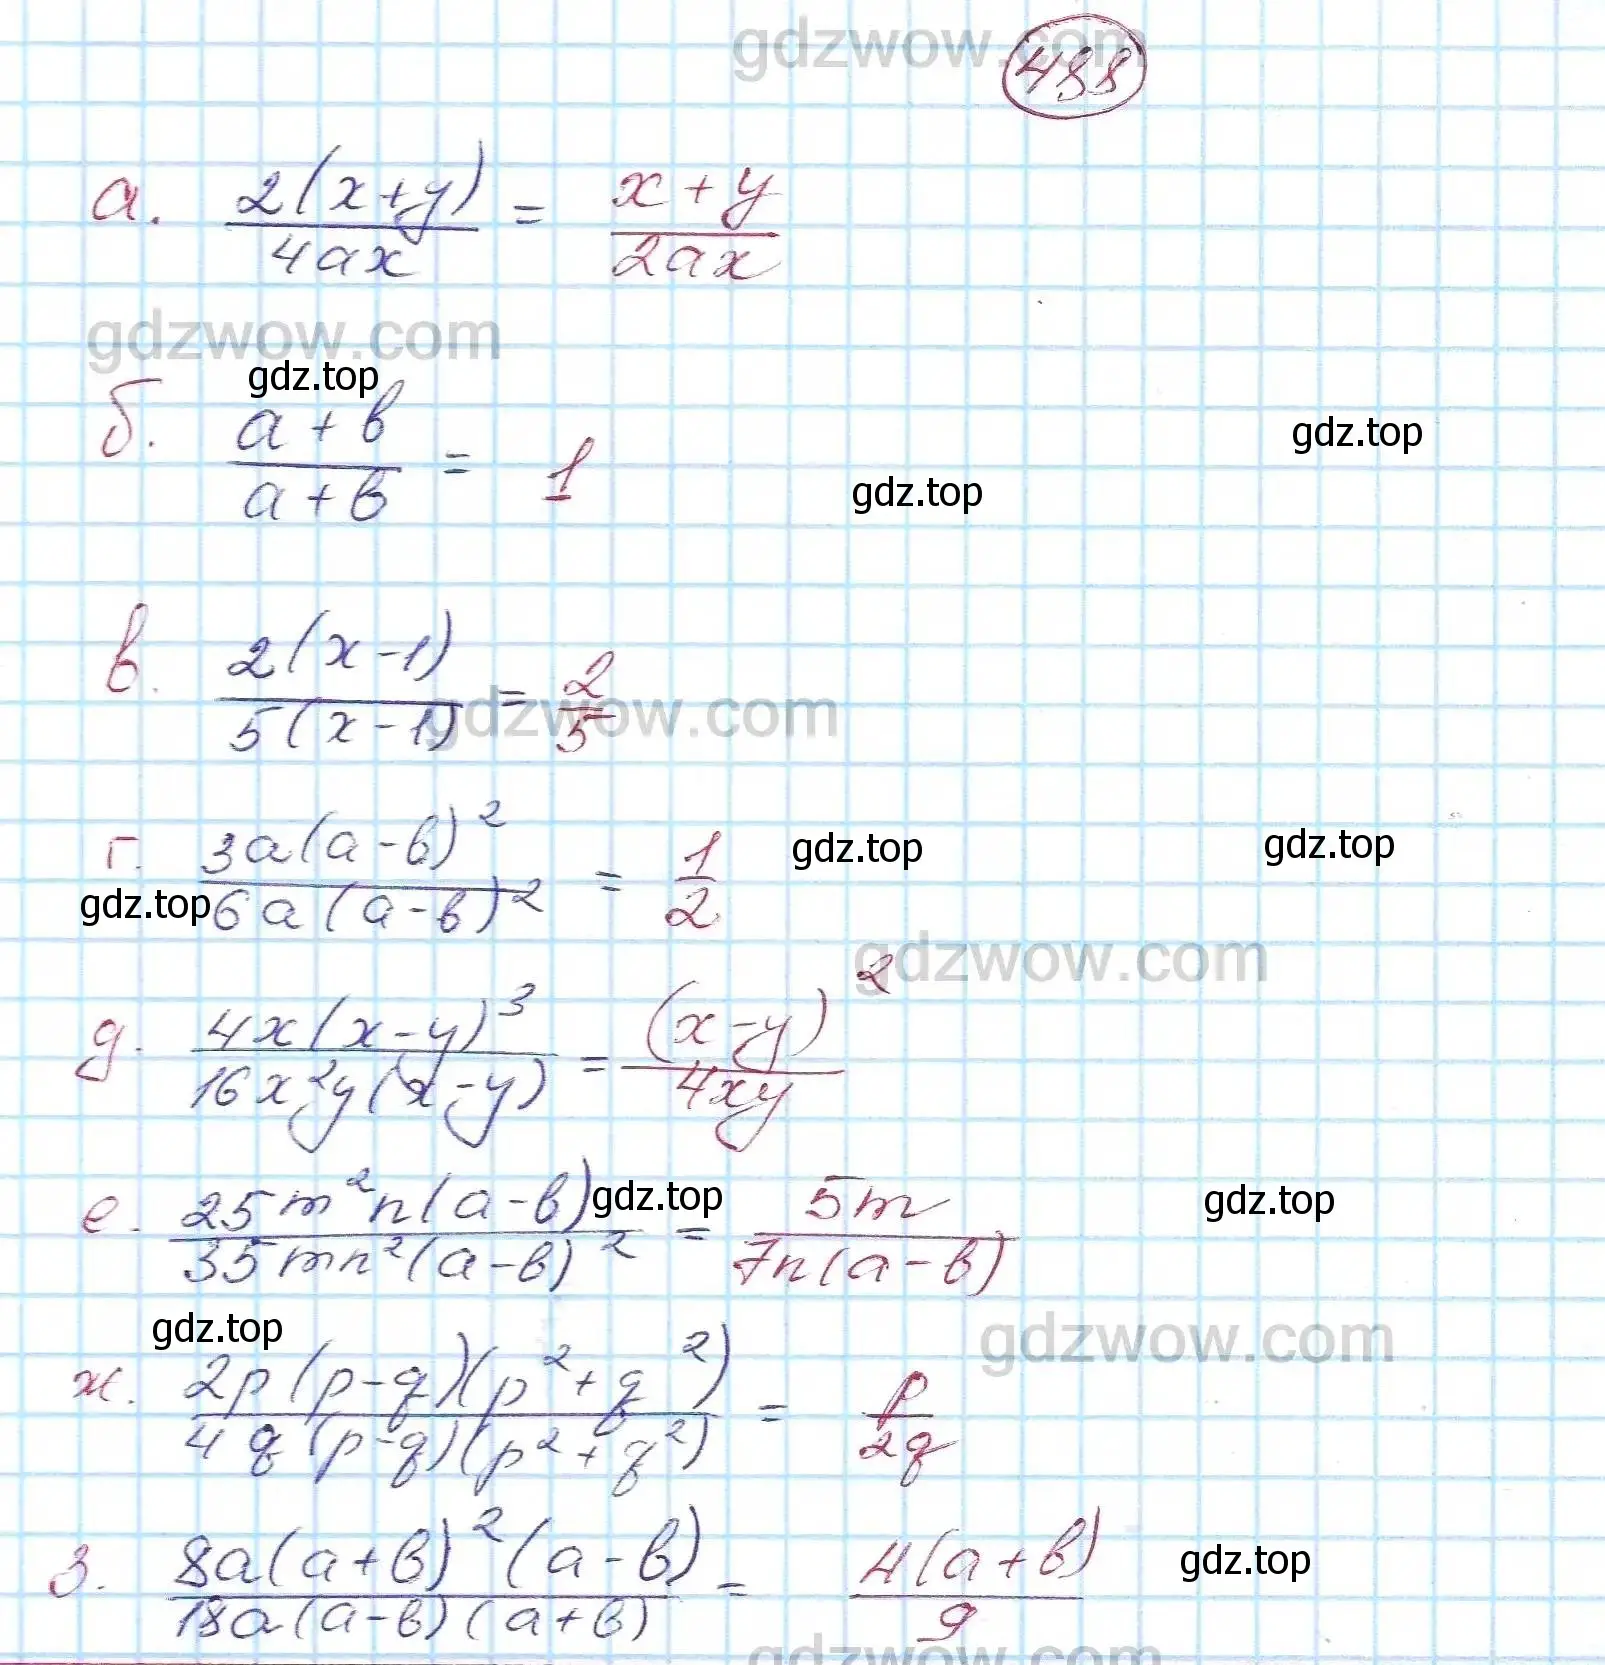 gdzwow.com
488
а. 2(x+y)/4ax = x+y/2ax
gdzwow.com
gdz.top
б. a+b/a+b = 1
gdz.top
gdz.top
в. 2(x-1)/5(x-1) = 2/5
gdzwow.com
г. 3a(a-b)²/6a(a-b)² = 1/2
gdz.top
gdz.top
gdz.top
gdzwow.com
д. 4x(x-y)³/16x²y(x-y) = (x-y)²/4xy
е. 25m²n(a-b)/35mn²(a-b)² = 5m/7n(a-b)
gdz.top
gdz.top
gdz.top
gdzwow.com
ж. 2p(p-q)(p²+q²)/4q(p-q)(p²+q²) = p/2q
з. 8a(a+b)²(a-b)/18a(a-b)(a+b) = 4(a+b)/9
gdz.top
gdzwow.com